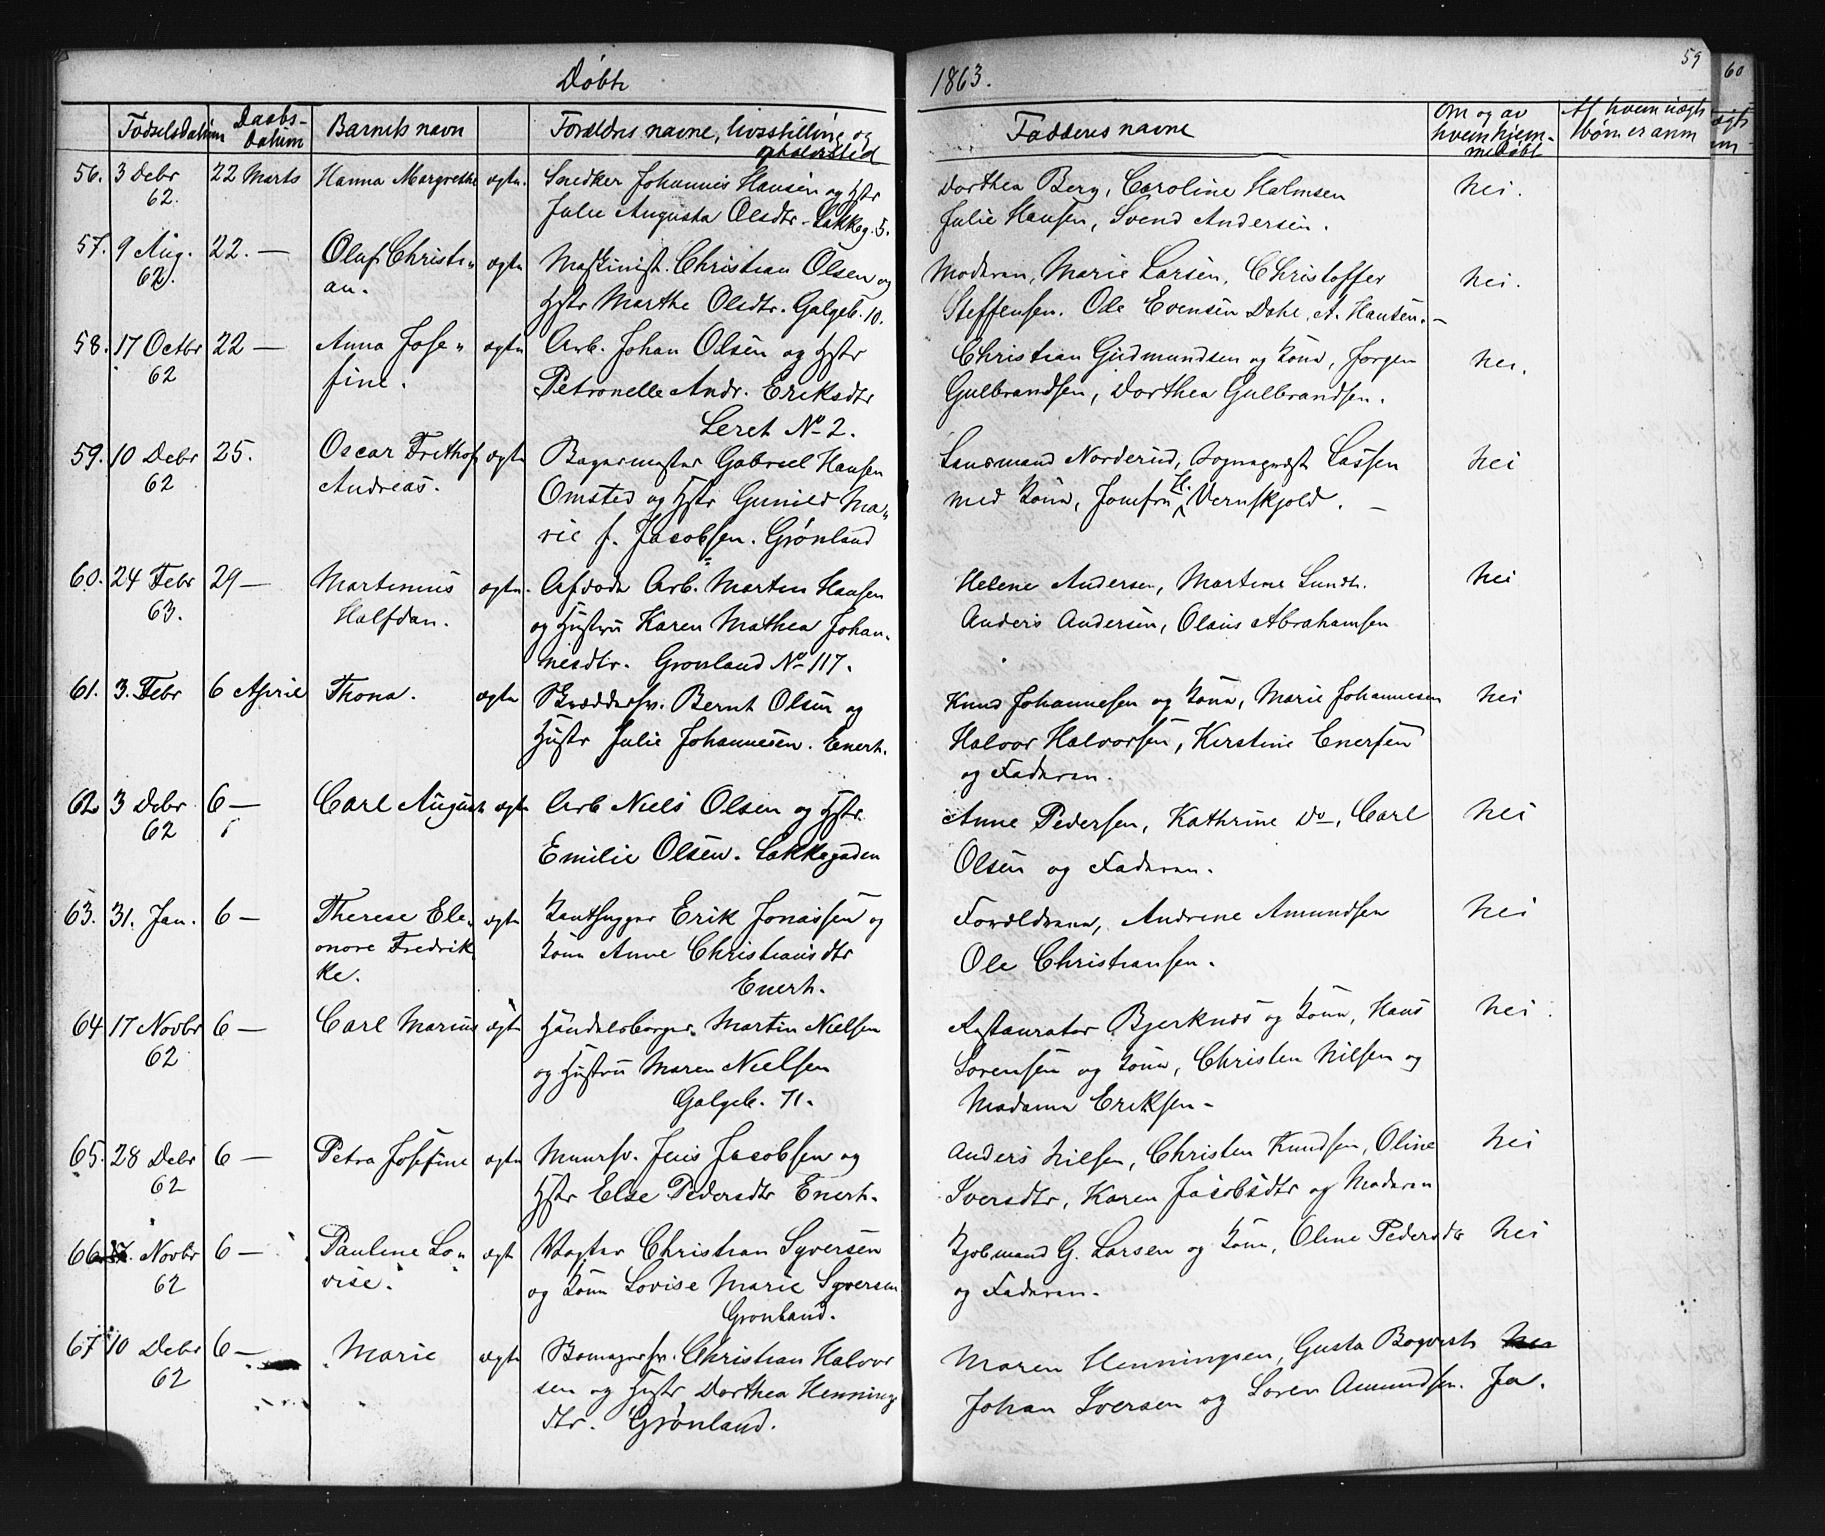 Døbte
1863.
59
60
Fødselsdatum
Daabs-
datum
Barnets navn
Forældres navne, livsstilling og
opholdsted
Faddernes navne
Om og av
hvem hjem-
medøbt
Af hvem uægte
børn er anm
56. 3 Debr 22 Marts Hanna Margrethe ægte. Snedker Johannes Hansen og Hstr
62. Julie Augusta Olsdtr. Lakkeg. 5.
Dorthea Berg, Caroline Halmsen nei.
Julie Hansen, Svend Andersen.
57. 9 Aug. 22. — Oluf Christi„ ægte Maskinist. Christian Olsen og
62. an. Hstr Marthe Olsdtr. Galgeb. 10.
Moderen, Marie Larsen, Christoffer nei.
Steffensen. Ole Evensen Dahl, A. Hansen. —
58. 17 Octbr 22 — Anna Jose„ ægte Arb. Johan Olsen og Hstr
62 fine. Petronelle Andr. Eriksdtr
Leret No 2.
Christian Gudmundsen og Kone, Jørgen nei.
Gulbrandsen, Dorthea Gulbrandsen.
59. 10 Debr 25. Oscar Frithof ægte Bagermester Gabriel Hansen
62 Andreas. Omsted og Hstr Gunild Ma„
rie f. Jacobsen. Grønland
Lensmand Norderud, Sogneprest Lassen nei
med Kone, Jomfru H. Vernskjold. —
60. 24 Febr 29 — Martinius ægte. Afdøde Arb. Martin Hansen
63. Halfdan. og Hustru Karen Mathea Johan-
nesdtr. Grønland No 117.
Helene Andersen, Martine Lundt. nei
Anders Andersen, Olaus Abrahamsen
61. 3. Febr 6 April Thona. ægte Skræddersv. Bernt Olsen og
Hustr Julie Johannesen. Enerh.
Knud Johannesen og Kone, Marie Johannesen nei
Halvor Halvorsen, Kirstine Enersen
og Faderen.
62 3 Debr 6 — Carl August ægte Arb Niels Olsen og Hstr.
62 Emilie Olsen. Lakkegaden
Anne Pedersen, Kathrine Do, Carl nei
Olsen og Faderen.
63. 31. Jan. 6 — Therese Ele„ ægte Kanthugger Erik Jonassen og
onore Fredrik Kone Anne Christiansdtr
ke. Enerh.
Forældrene, Andrine Amundsen nei
Ole Christiansen.
64 17 Novbr 6 — Carl Marius ægte Handelsborger. Martin Nielsen
62 og Hustru Maren Nielsen
Galgeb. 71.
Restauratør Bjerknes og Kone, Hans nei.
Sørensen og Kone, Christen Nilsen og
Madame Eriksen —
65. 28 Debr 6 — Petra Josefine ægte Muursv. Jens Jacobsen og
62 Hstr Else Pedersdtr Enerh.
Anders Nilsen, Christen Knudsen, Oline nei
Iversdtr, Karen Jacobsdtr og Moderen
66 Novbr 6 — Pauline Lo„ ægte Vægter Christian Syversen
62 vise. og Kone Lovise Marie Syversen
Grønland.
Kjøbmand G. Larsen og Kone, Oline Pedersdtr nei
og Faderen.
67 10 Debr 6 — Marie ægte Bomagersv. Christian Halvor
62 sen og Hustr Dorthea Hennings
dtr. Grønland.
Maren Henningsen, Gusta Bogvest nei
Johan Iversen og Søren Amundsen. Ja.